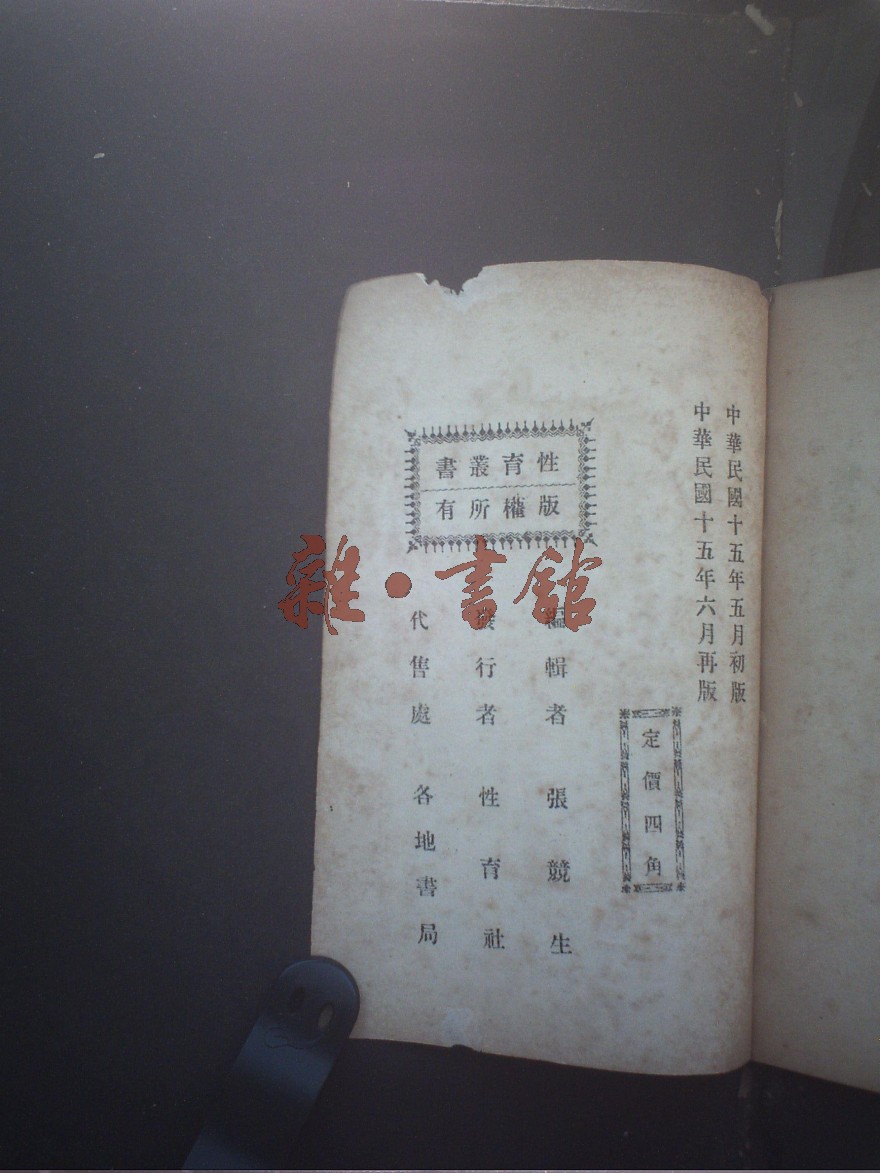 中華民國十五年五月初版
中華民國十五年六月再版
定價四角
性育叢書
版權所有
編輯者 張競生
發行者 性育社
代售處 各地書局
雜·書館